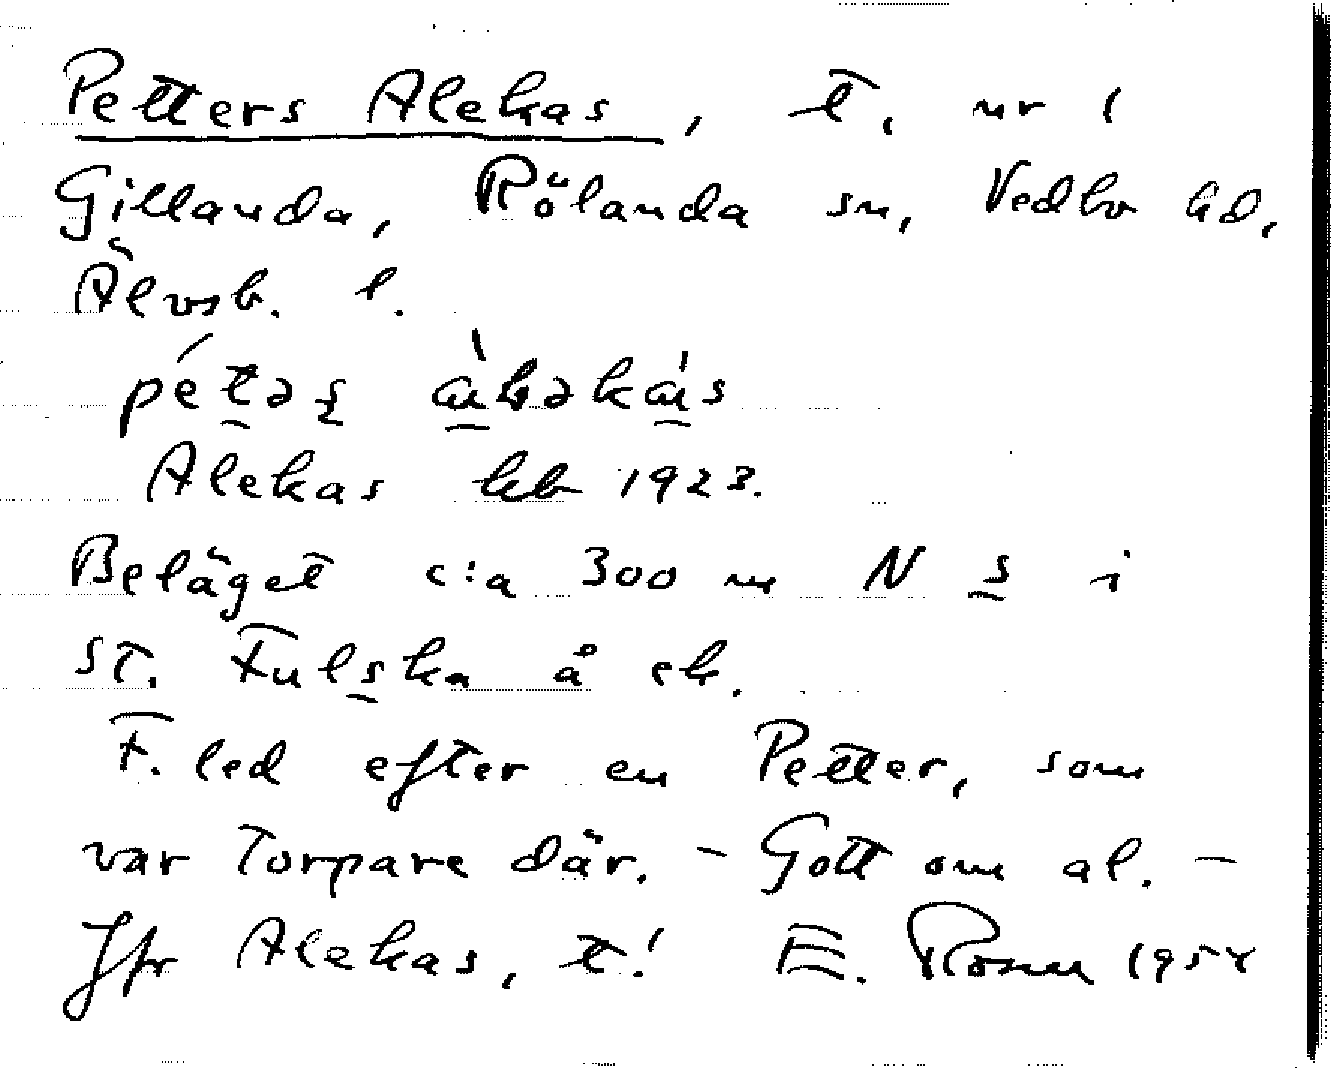 Petters Alekas, t. nr 1
Gillanda, Rölanda sn, Vedbo hd,
Älvsb. l.
Alekas kb 1923.
Beläget c:a 300 m N s i
st. Fulska å ek.
F. led efter en Petter, som
var torpare där. - Gott om al. -
Jfr Alekas, t! E. Rosell 1954